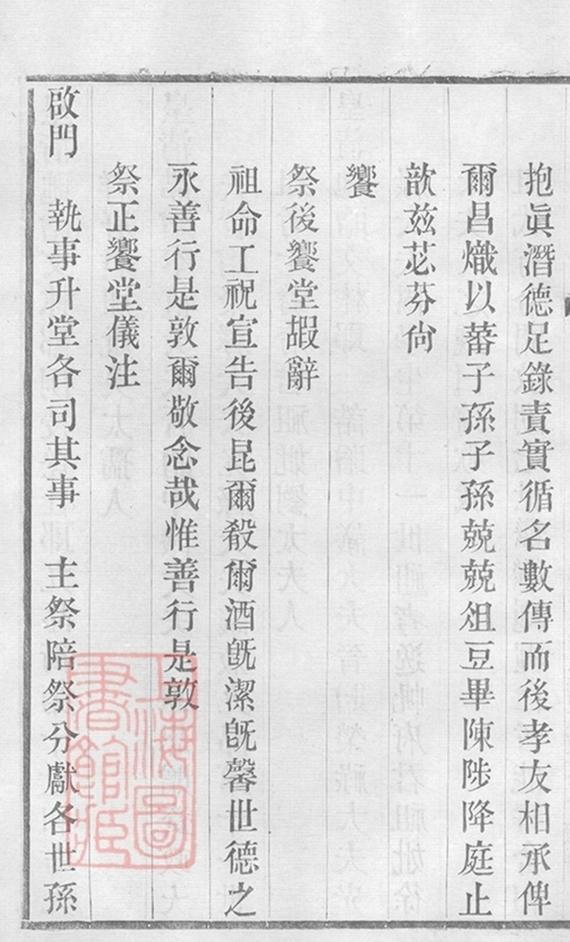 抱眞潛德足錄責實循名數傳而後孝友相承俾
爾昌熾以蕃子孫子孫兢兢俎豆畢陳陟降庭止
歆茲苾芬尙
饗
祭後饗堂嘏辭
祖命工祝宣告後昆爾殽爾酒旣潔旣馨世德之
永善行是敦爾敬念哉惟善行是敦
祭正饗堂儀注
啟門　執事升堂各司其事　主祭陪祭分獻各世孫
上海圖
書館藏